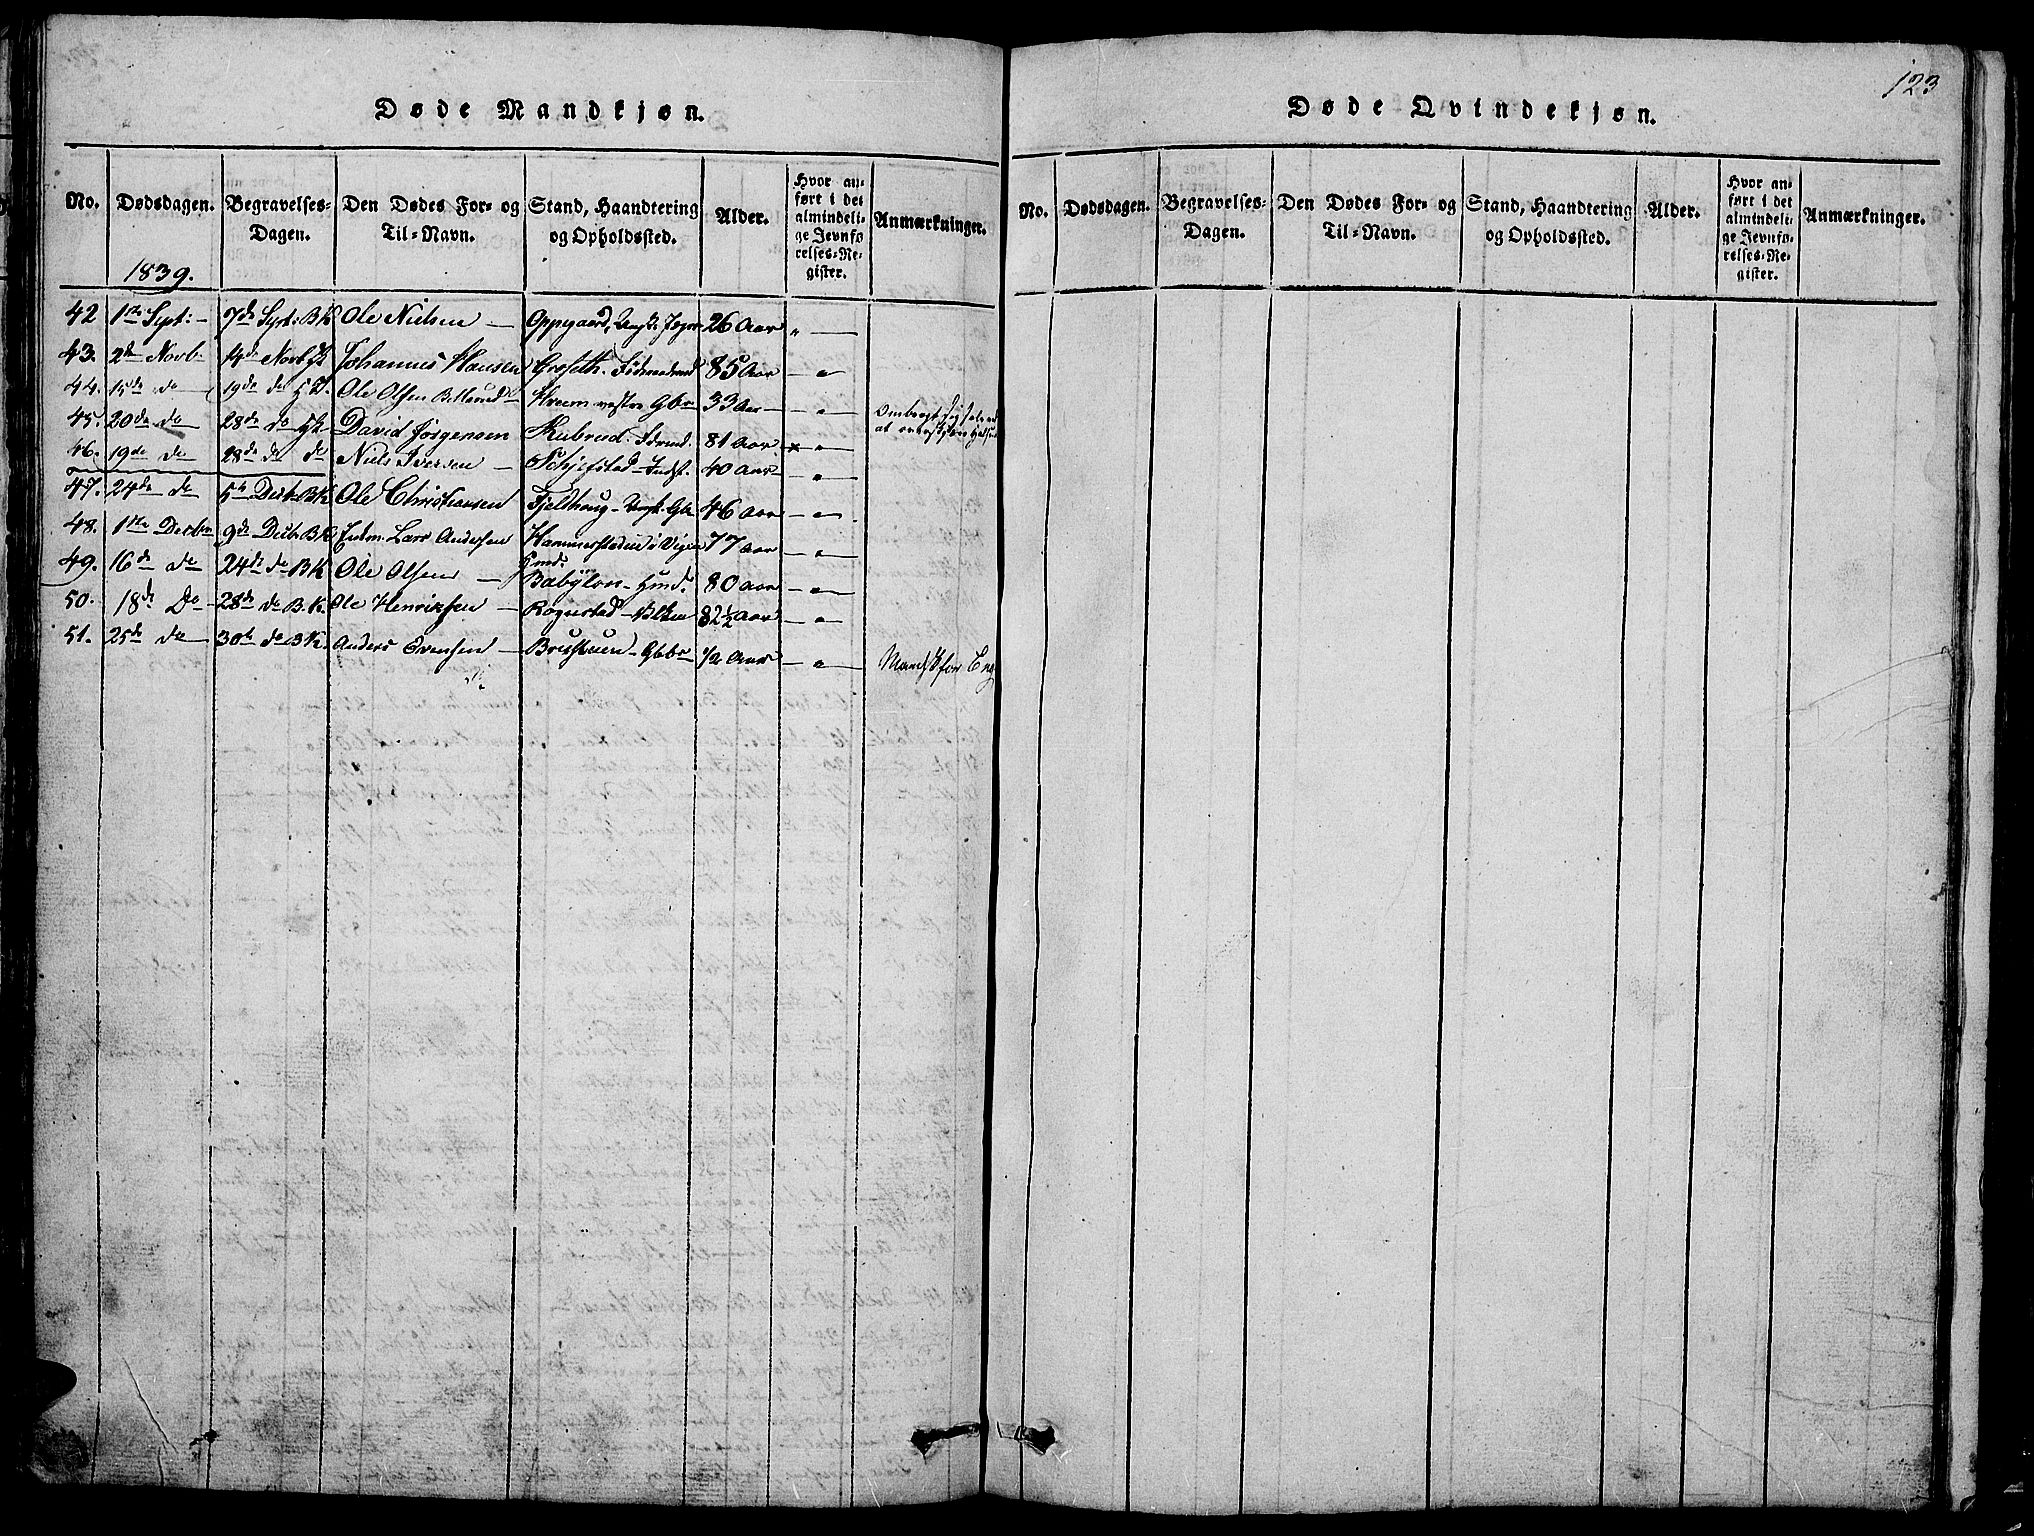 123
Døde Mandkjøn.
No. Dødsdagen. Begravelses-Dagen. Den Dødes For- og Til-Navn. Stand, Haandtering og Opholdssted. Alder. Hvor anført i det almindelige Jevnførelses-Register. Anmærkninger.
1839.
42 1ste Sept: – 7de Sept: BK Ole Nielsen — Oppegaard, 26 Aar " —
43. 2de Novb. 14de Novb. Johannes Hansen Grefseth. 85 Aar — " —
44. 15de do 19de do Ole Olsen Hveem vestre 33 Aar — " — Ombragt sig selv ved at overskjære Halsen
45. 20de do 28de do David Jørgensen Rubrud. 81 Aar. × " —
46. 19de do 28de do do Niels Iversen — Schjefstad – Indst. 40 Aar — " —
47. 24de do 5te Decb. BK Ole Christiansen Fjeldhoug – 46 Aar — " —
48. 1ste Decbr 9de Decb. BK Lars Andersen Hammerstadeie 77 Aar — " —
49. 16de do 24de do BK Ole Olsen — Babylon – Hund. 80 Aar — " —
50. 18de Do – 28de do B.K. Ole Henriksen — Rognstad – 82½ Aar — " —
51. 25de do 30te do BK. Anders Evensen — Brustuen – Gbbr ½ Aar — " —
Døde Qvindekjøn.
No. Dødsdagen. Begravelses-Dagen. Den Dødes For- og Til-Navn. Stand, Haandtering og Opholdssted. Alder. Hvor anført i det almindelige Jevnførelses-Register. Anmærkninger.